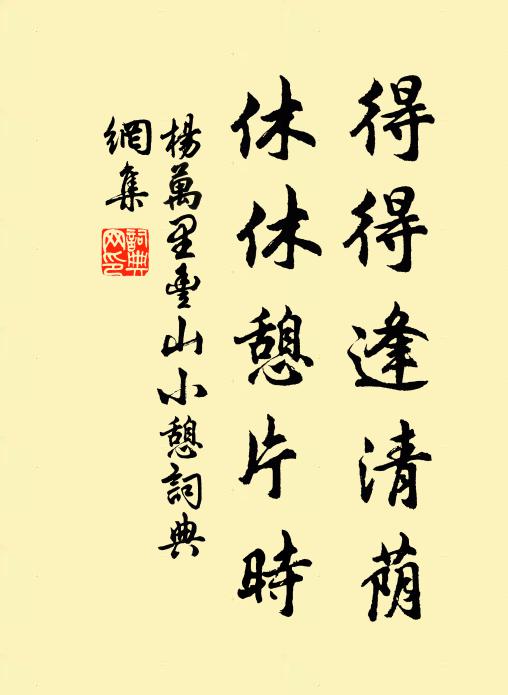 得得逢清荫
休休憩片時
楊萬里豊山小憩詞典
網集
詞典
网印